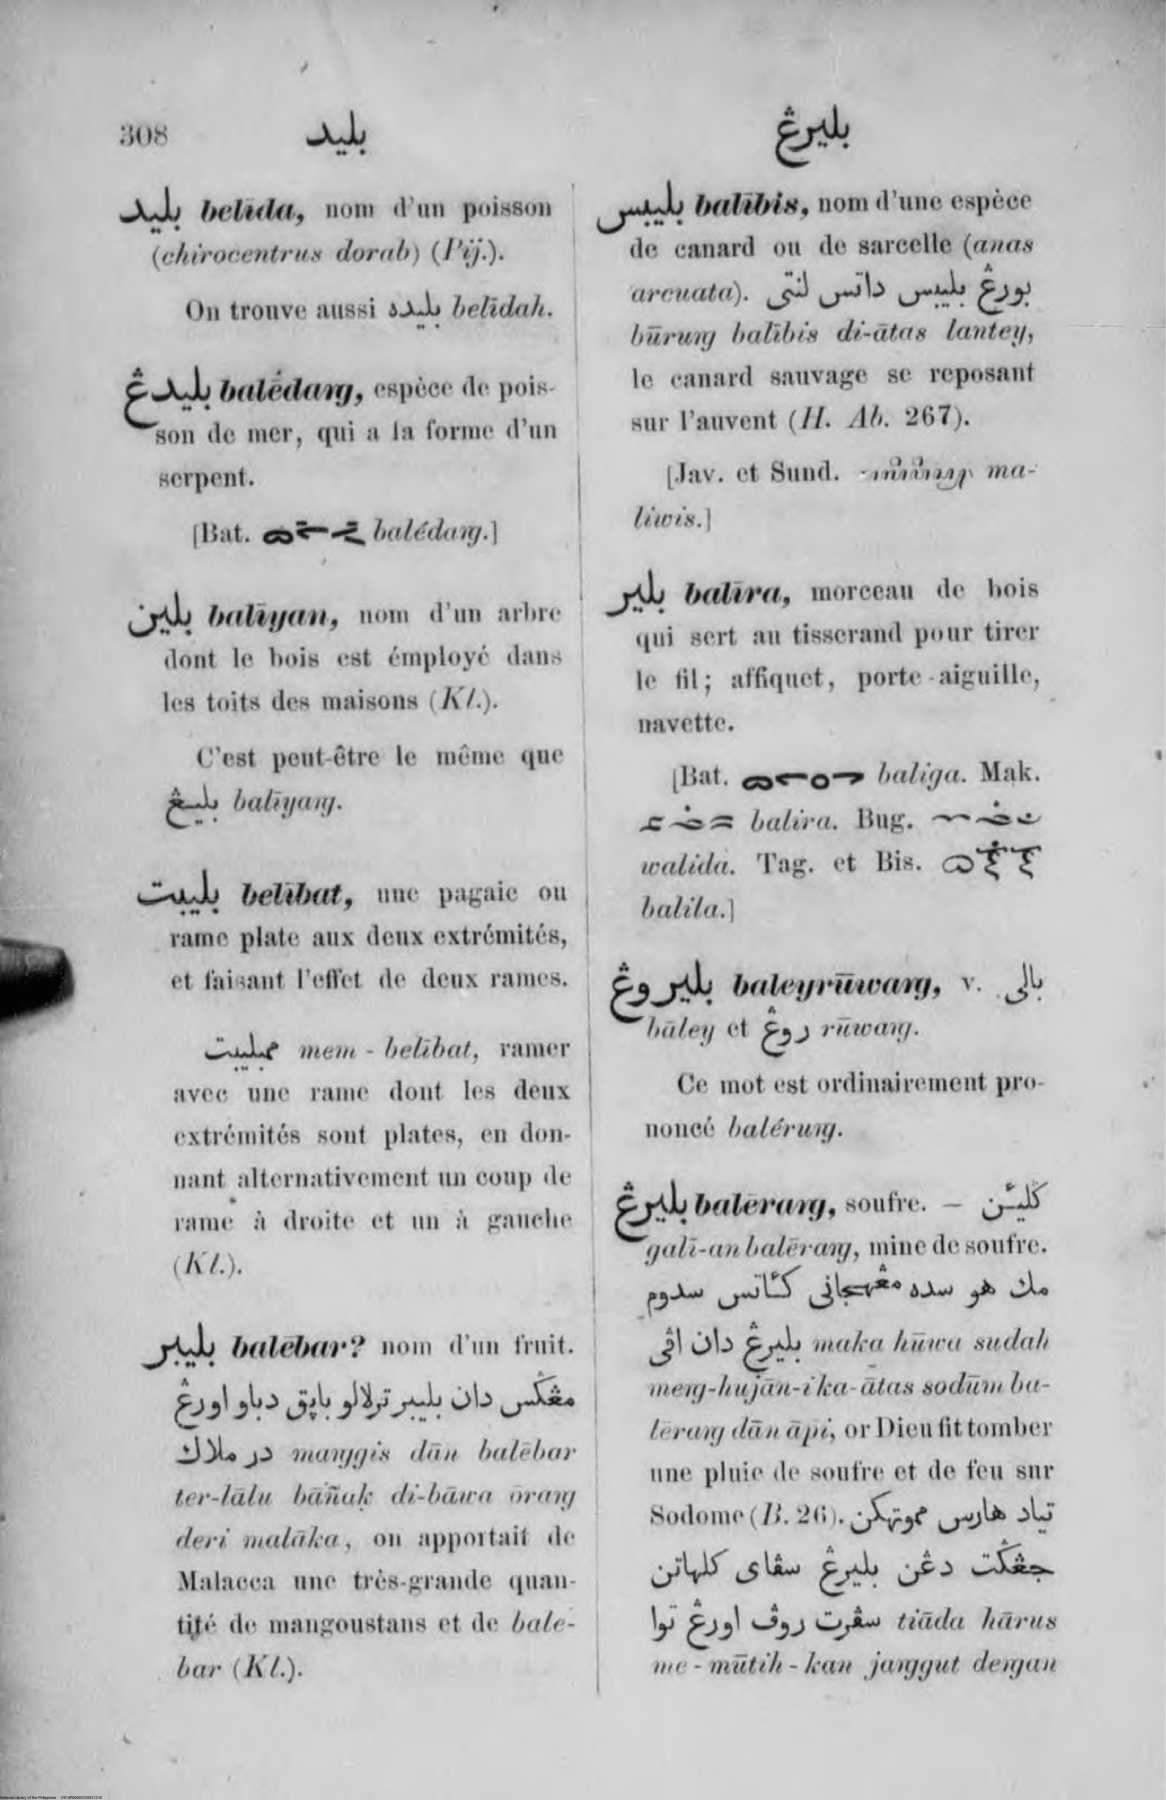 308
بليد
بليرڠ
بليد belīda, nom d'un poisson
(chirocentrus dorab) (Pij.).
On trouve aussi بليده belīdah.
بليدڠ balédaŋ, espèce de pois-
son de mer, qui a la forme d'un
serpent.
[Bat. balédaŋ.]
بلين balīyan, nom d'un arbre
dont le bois est émployé dans
les toits des maisons (Kl.).
C'est peut-être le même que
بلييڠ balīyaŋ.
بليبت belībat, une pagaie ou
rame plate aux deux extrémités,
et faisant l'effet de deux rames.
ممبليبت mem-belībat, ramer
avec une rame dont les deux
extrémités sont plates, en don-
nant alternativement un coup de
rame à droite et un à gauche
(Kl.).
بليبر balēbar? nom d'un fruit.
مڠݢس دان بليبر ترلالو باپق دباو اورڠ
در ملاك maŋggis dān balēbar
ter-lālu bāñak di-bāwa ōraŋ
deri malāka, on apportait de
Malacca une très-grande quan-
tité de mangoustans et de bale-
bar (Kl.).
بليبس balībis, nom d'une espèce
de canard ou de sarcelle (anas
arcuata). بورڠ بليبس داتس لنتى
būruŋ balībis di-ātas lantey,
le canard sauvage se reposant
sur l'auvent (H. Ab. 267).
[Jav. et Sund. ma-
liwis.]
بلير balīra, morceau de bois
qui sert au tisserand pour tirer
le fil; affiquet, porte-aiguille,
navette.
[Bat. baliga. Mak.
balira. Bug.
walida. Tag. et Bis.
balila.]
بليروڠ baleyrūwaŋ, v. بالى
bāley et روڠ rūwaŋ.
Ce mot est ordinairement pro-
noncé baléruŋ.
بليرڠ balēraŋ, soufre. — ݢليئن
galī-an balēraŋ, mine de soufre.
مك هو سده مڠهجانى كئاتس سدوم
بليرڠ دان اڤى maka hūwa sudah
meŋ-hujān-i ka-ātas sodūm ba-
lēraŋ dān āpi, or Dieu fit tomber
une pluie de soufre et de feu sur
Sodome (B. 26). تياد هارس مموتهكن
جڠݢت دڠن بليرڠ سڤاى كلهاتن
سڤرت روڤ اورڠ توا tiāda hārus
me-mūtih-kan jaŋggut deŋan